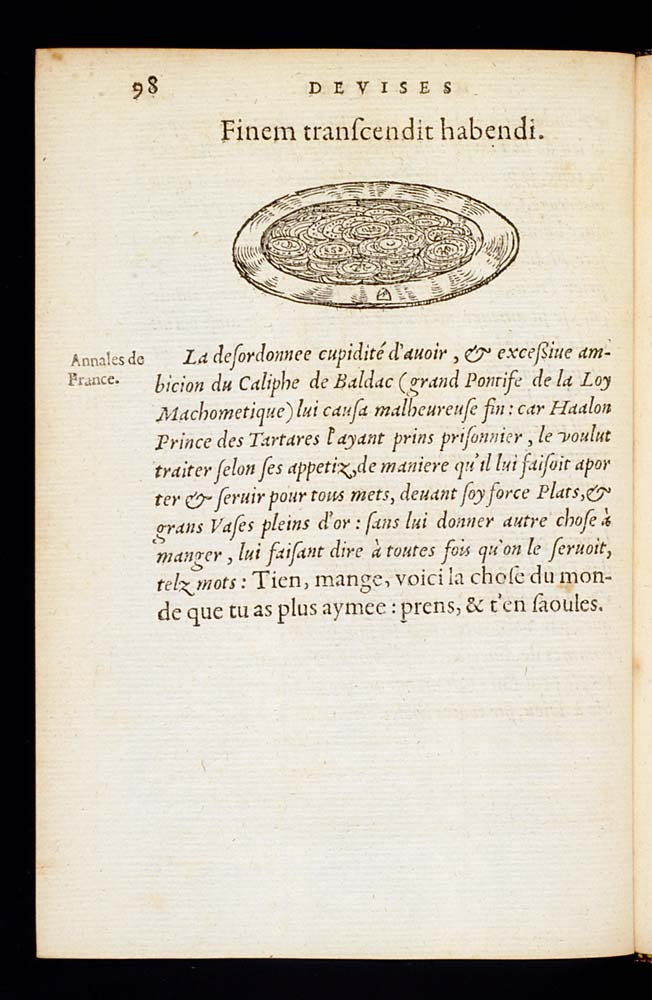 98 DEVISES
Finem tranſcendit habendi.
Annales de
France.
La deſordonnee cupidité d'auoir, & exceſsiue am-
bicion du Caliphe de Baldac (grand Pontife de la Loy
Machometique) lui cauſa malheureuſe fin: car Haalon
Prince des Tartares l'ayant prins priſonnier, le voulut
traiter ſelon ſes appetiz, de maniere qu'il lui faiſoit apor
ter & ſeruir pour tous mets, deuant ſoy force Plats, &
grans Vaſes pleins d'or: ſans lui donner autre choſe à
manger, lui faiſant dire à toutes fois qu'on le ſeruoit,
telz mots: Tien, mange, voici la choſe du mon-
de que tu as plus aymee: prens, & t'en ſaoules.